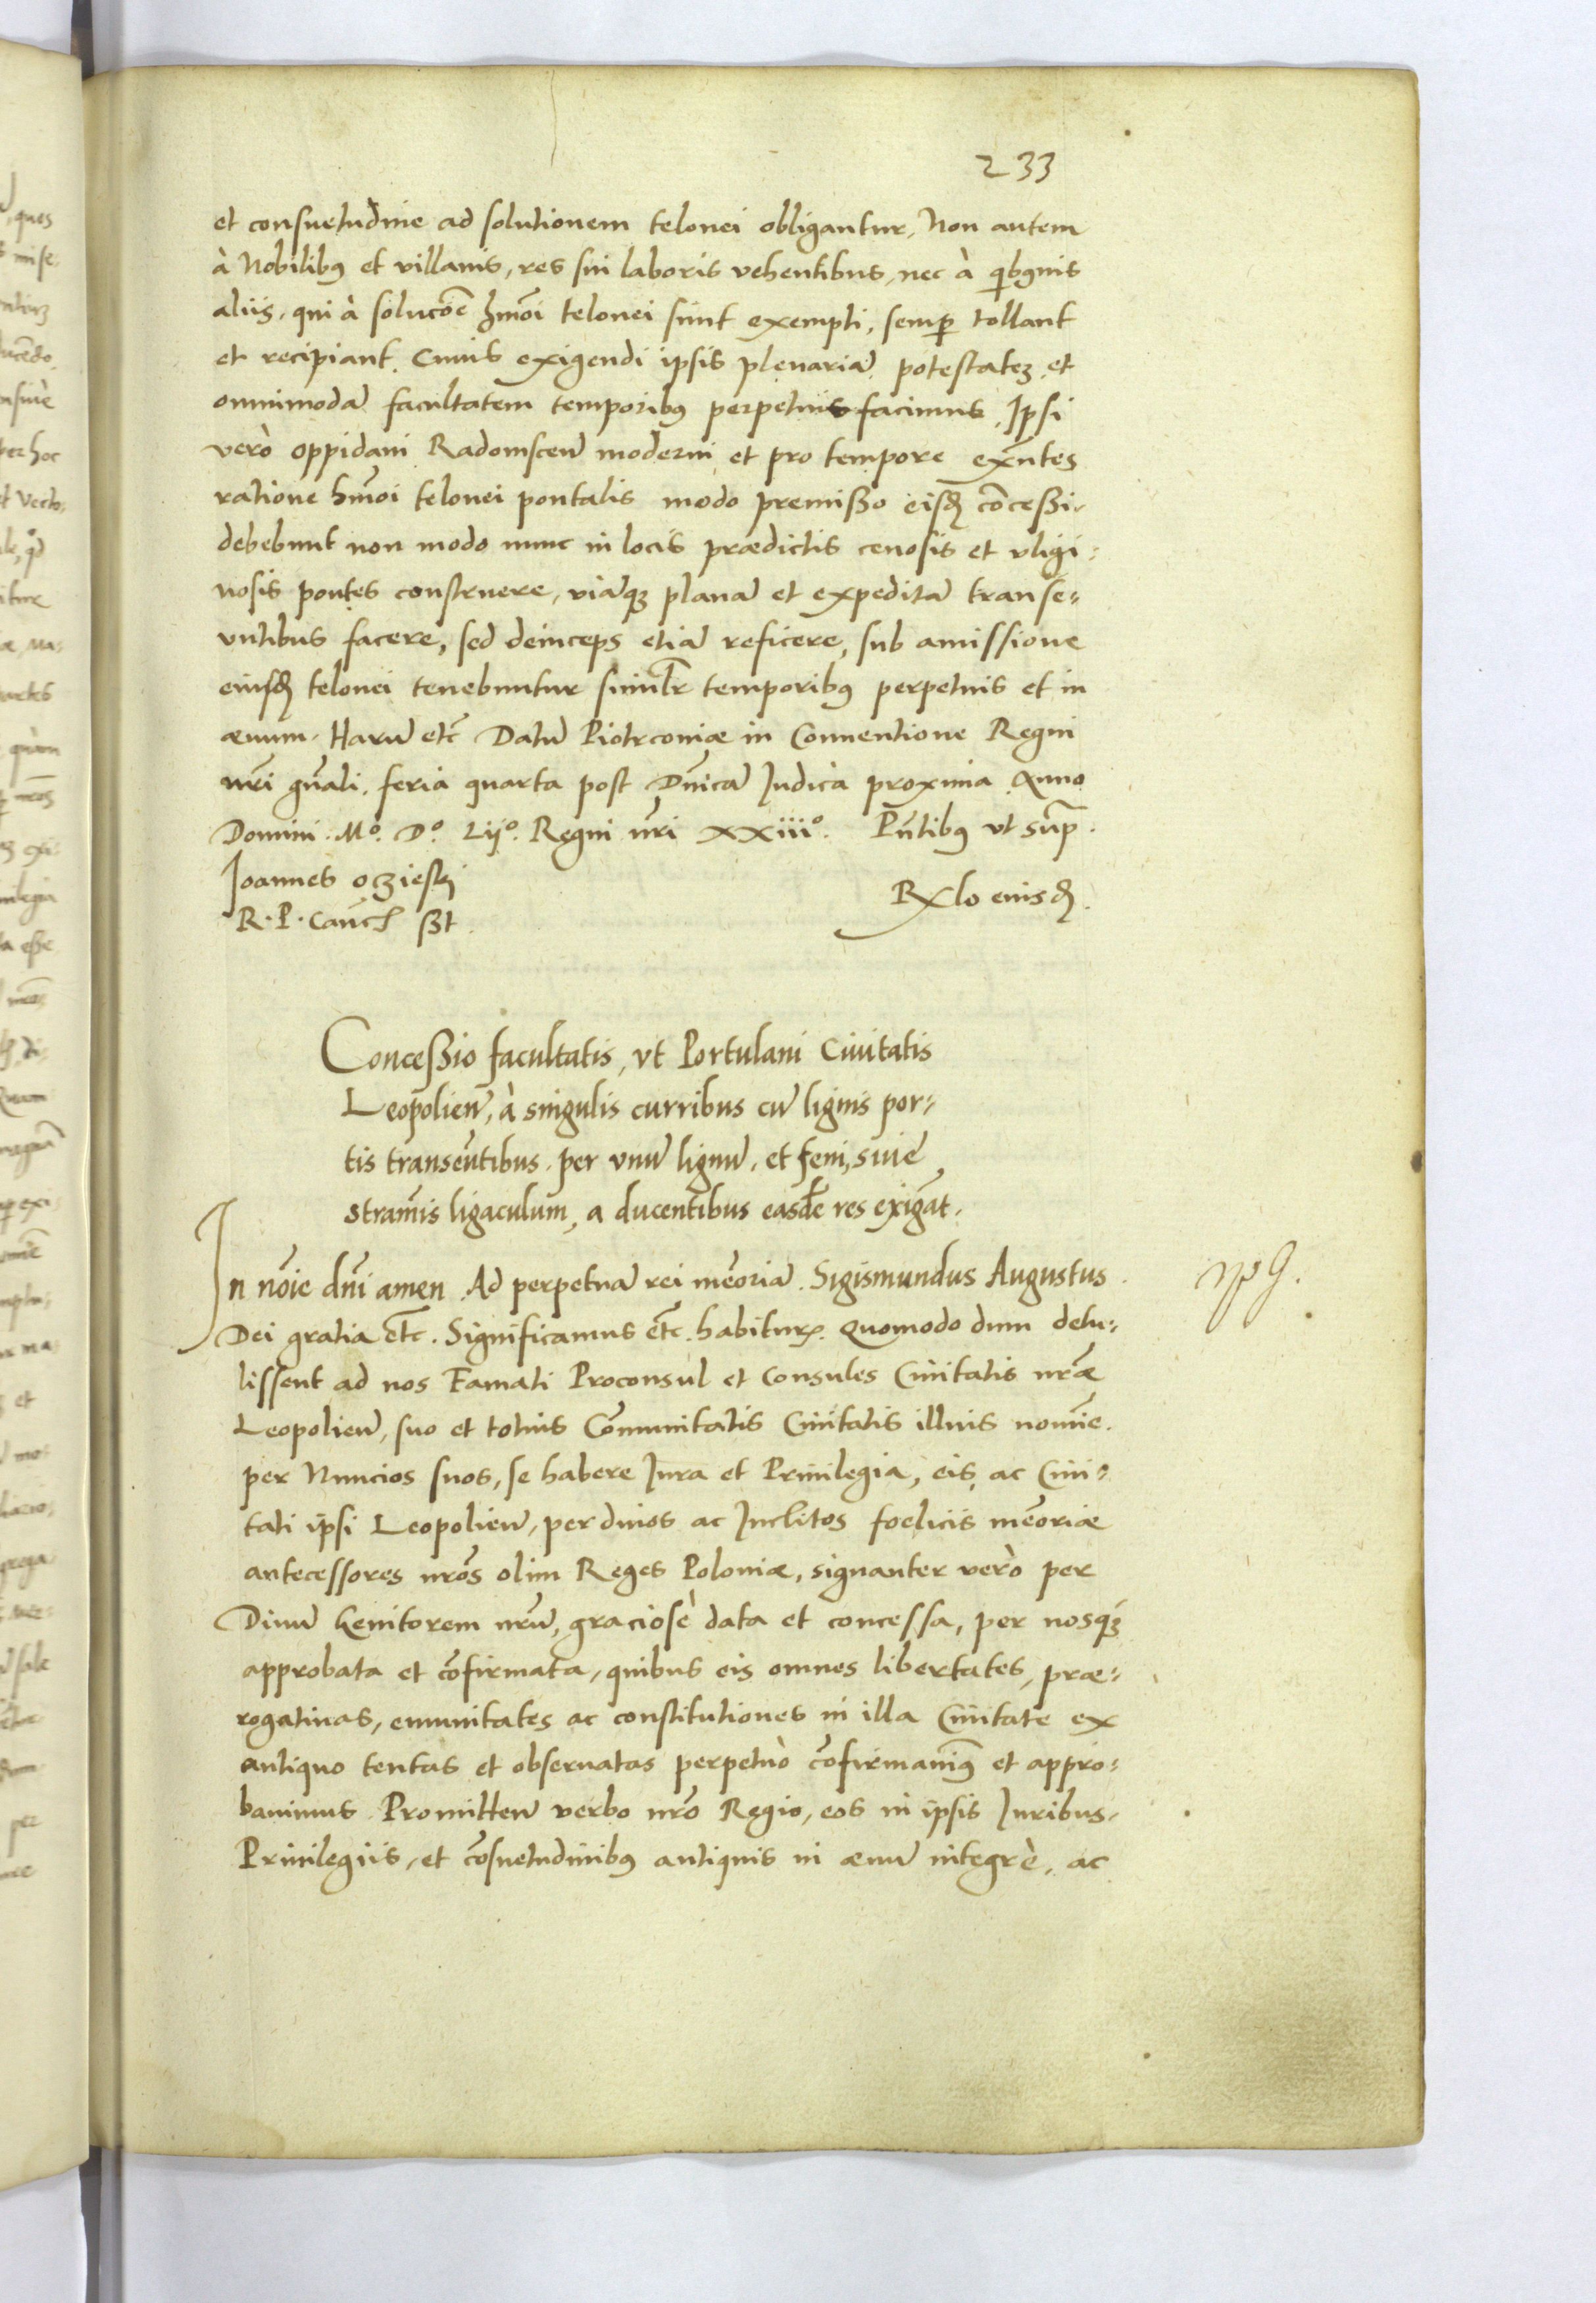 233
et consuetudine ad solutionem telonei obligantur, Non autem
à Nobilibꝰ et villanis, res sui laboris vehentibus, nec à qͥbꝰuis
aliis, qui à solucōe hmōi telonei sunt exempti, semꝑ tollant
et recipiant. Cuius exigendi ipsis plenariā potestatеꝫ et
omnimodā facultatem temporibꝰ perpetuis facimus, Ipsi
verò oppidani Radomscen̄ moderni et pro tempore exn̄tes
ratione hmōi telonei pontalis modo premißo eisđ cōceßi,
debebunt non modo nunc in locis prædictis cenosis et vligi-
nosis pontes construere, viāqꝫ planā et expeditā transe-
untibus facere, sed deinceps etiā reficere, sub amissione
eiusđ telonei tenebuntur simılr̄ temporibꝰ perpetuis et in
æuum. Harū etc̄ Datū Piotrconiæ in Conuentione Regni
nr̄i gn̄ali, feria quarta post Dn̄icā Iudica proxima Anno
Domini. Mº. Dº. Lijº. Regni nr̄i xxiiiº. Pn̄tibꝰ vt supꝛ.
Joannes oczieski
R. P. Cancł ßt
Rlo eiusđ.
Conceßio facultatis, vt Portulani Ciuitatis
Leopolien̄, à singulis curribus cū lignis por-
tis transeūtibus, per vnū lignū, et feni, siue
straminis ligaculum, a ducentibus easdē res exigāt.
In nōie dn̄i amen. Ad perpetuā rei mēoriā. Sigismundus Augustus
Dei gratia etc̄. Significamus etc̄. habiturꝝ. Quomodo dum detu-
lissent ad nos Famati Proconsul et Consules Ciuitatis nr̄æ
Leopolien̄, suo et totius Cōmunitatis Ciuitatis illius nomīe.
per Nuncios suos, se habere Iura et Priuilegia, eis ac Ciui-
tati ipsi Leopolien̄, per diuos ac Inclitos foelicis mēoriæ
antecessores nr̄os olim Reges Poloniæ, signanter verò per
Diuū Genitorem nr̄ū, graciosè data et concessa, per nosqꝫ
approbata et cōfirmata, quibus eis omnes libertates, præ-
rogatiuas, emunitates ac constitutiones in illa Ciuitate ex
antiquo tentas et obseruatas perpetuò cōfirmauimꝰ et appro-
bauimus. Promitten̄ verbo nr̄o Regio, eos in ipsis Iuribus,
Priuilegiis, et cōsuetudinibꝰ antiquis in æuū integrè, ac